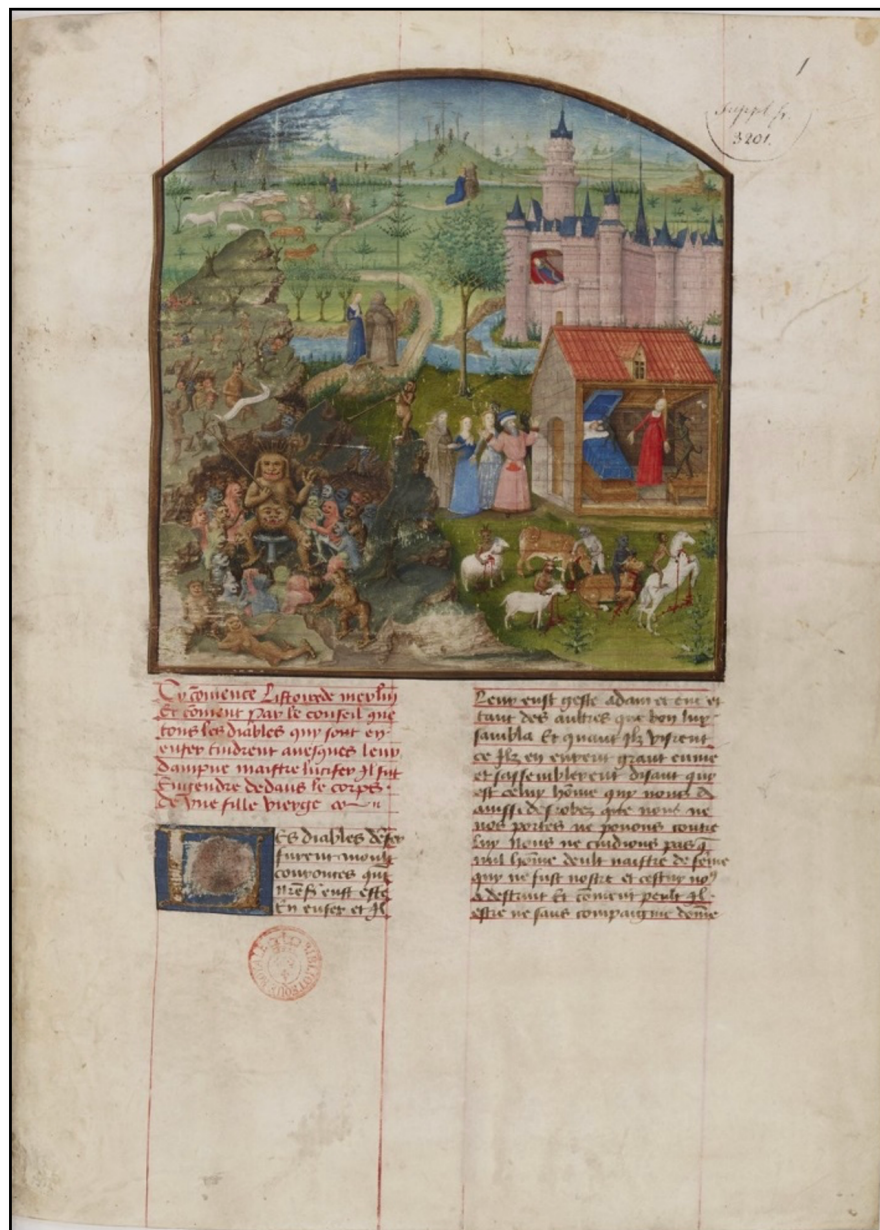 1
Suppl. fr.
3201.
Cy comence Listoire de merlin
Et coment par le conseil que
tous les diables qui sont en
enfer tindrent avesques leur
dampne maistre lucifer Il fut
Engendre dedans le corps
de une fille vierge
Les diables denfer
furent moult
courouces que
eust este
En enfer et Il
Leur eust geste adam et eve et
tant des aultres que bon luy
sambla Et quant Ilz virent
ce Ilz en eurent grant
et sassemblerent disant qui
est celuy home qui nous a
ainssi desrobez que nous ne
nos portes ne pouons contre
luy Nous ne cuidions pas q
nul home deult naistre de feme
qui ne fust nostre et cestuy no
a destruit Et coment peult Il
estre ne sans compaignie dome